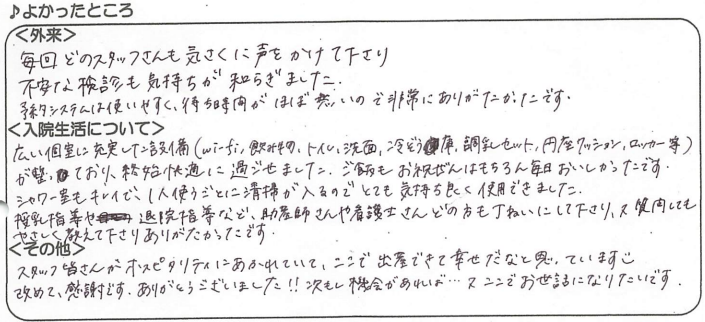 ♪よかったところ
<外来>
毎回どのスタッフさんも気さくに声をかけて下さり
不安な検診も気持ちが和らぎました。
予約システムは使いやすく、待ち時間がほぼ無いので非常にありがたかったです。
<入院生活について>
広い個室に充実した設備(wi-fi,飲み物,トイレ,洗面,冷ぞう庫,調乳セット,円座クッション,ロッカー等)
が整っており、終始快適に過ごせました。ご飯もお祝ぜんはもちろん毎日おいしかったです。
シャワー室もキレイで、1人使うごとに清掃が入るのでとても気持ち良く使用できました。
授乳指導や退院指導など、助産師さんや看護士さんどの方も丁ねいにして下さり、又質問しても
やさしく教えて下さりありがたかったです。
<その他>
スタッフ皆さんがホスピタリティにあふれていて、ここで出産できて幸せだなと思っています
改めて、感謝です。ありがとうございました!!次もし機会があれば…又ここでお世話になりたいです。